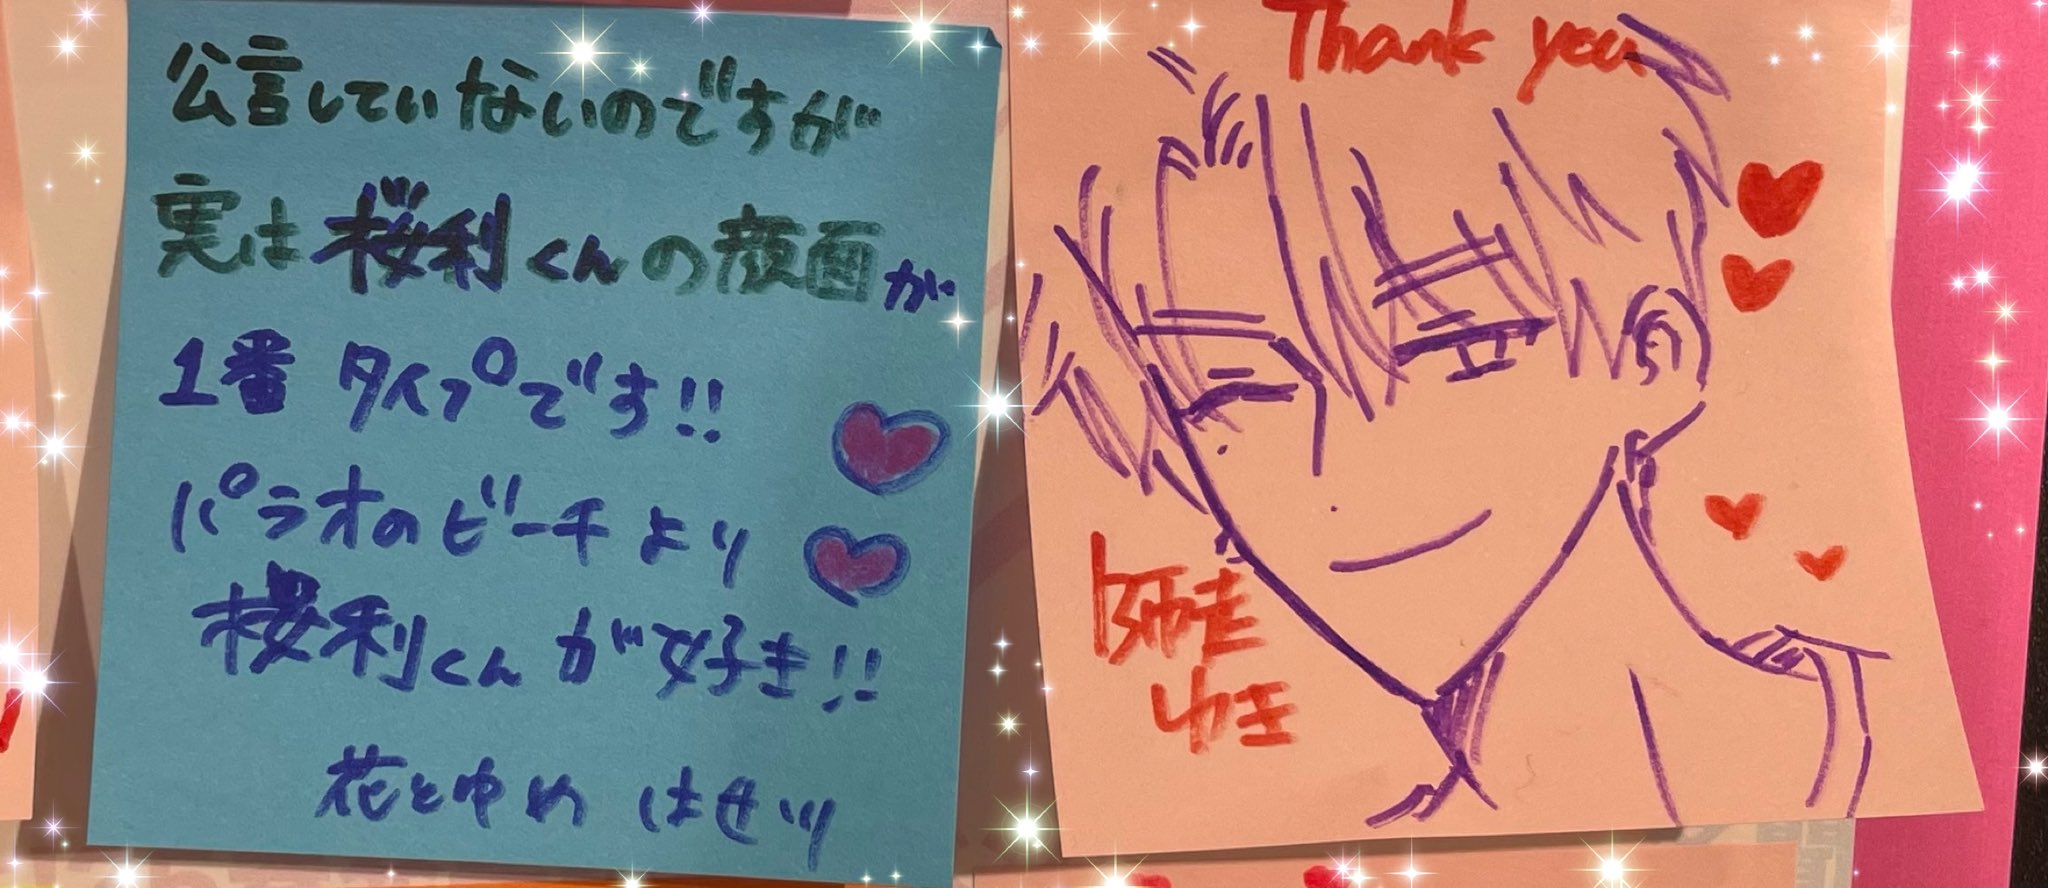 公言していないのですが
実は桜利くんの顔面が
1番タイプです!!
パラオのビーチより
桜利くんが好き!!
花とゆめ はせツ
Thank you
ゆき